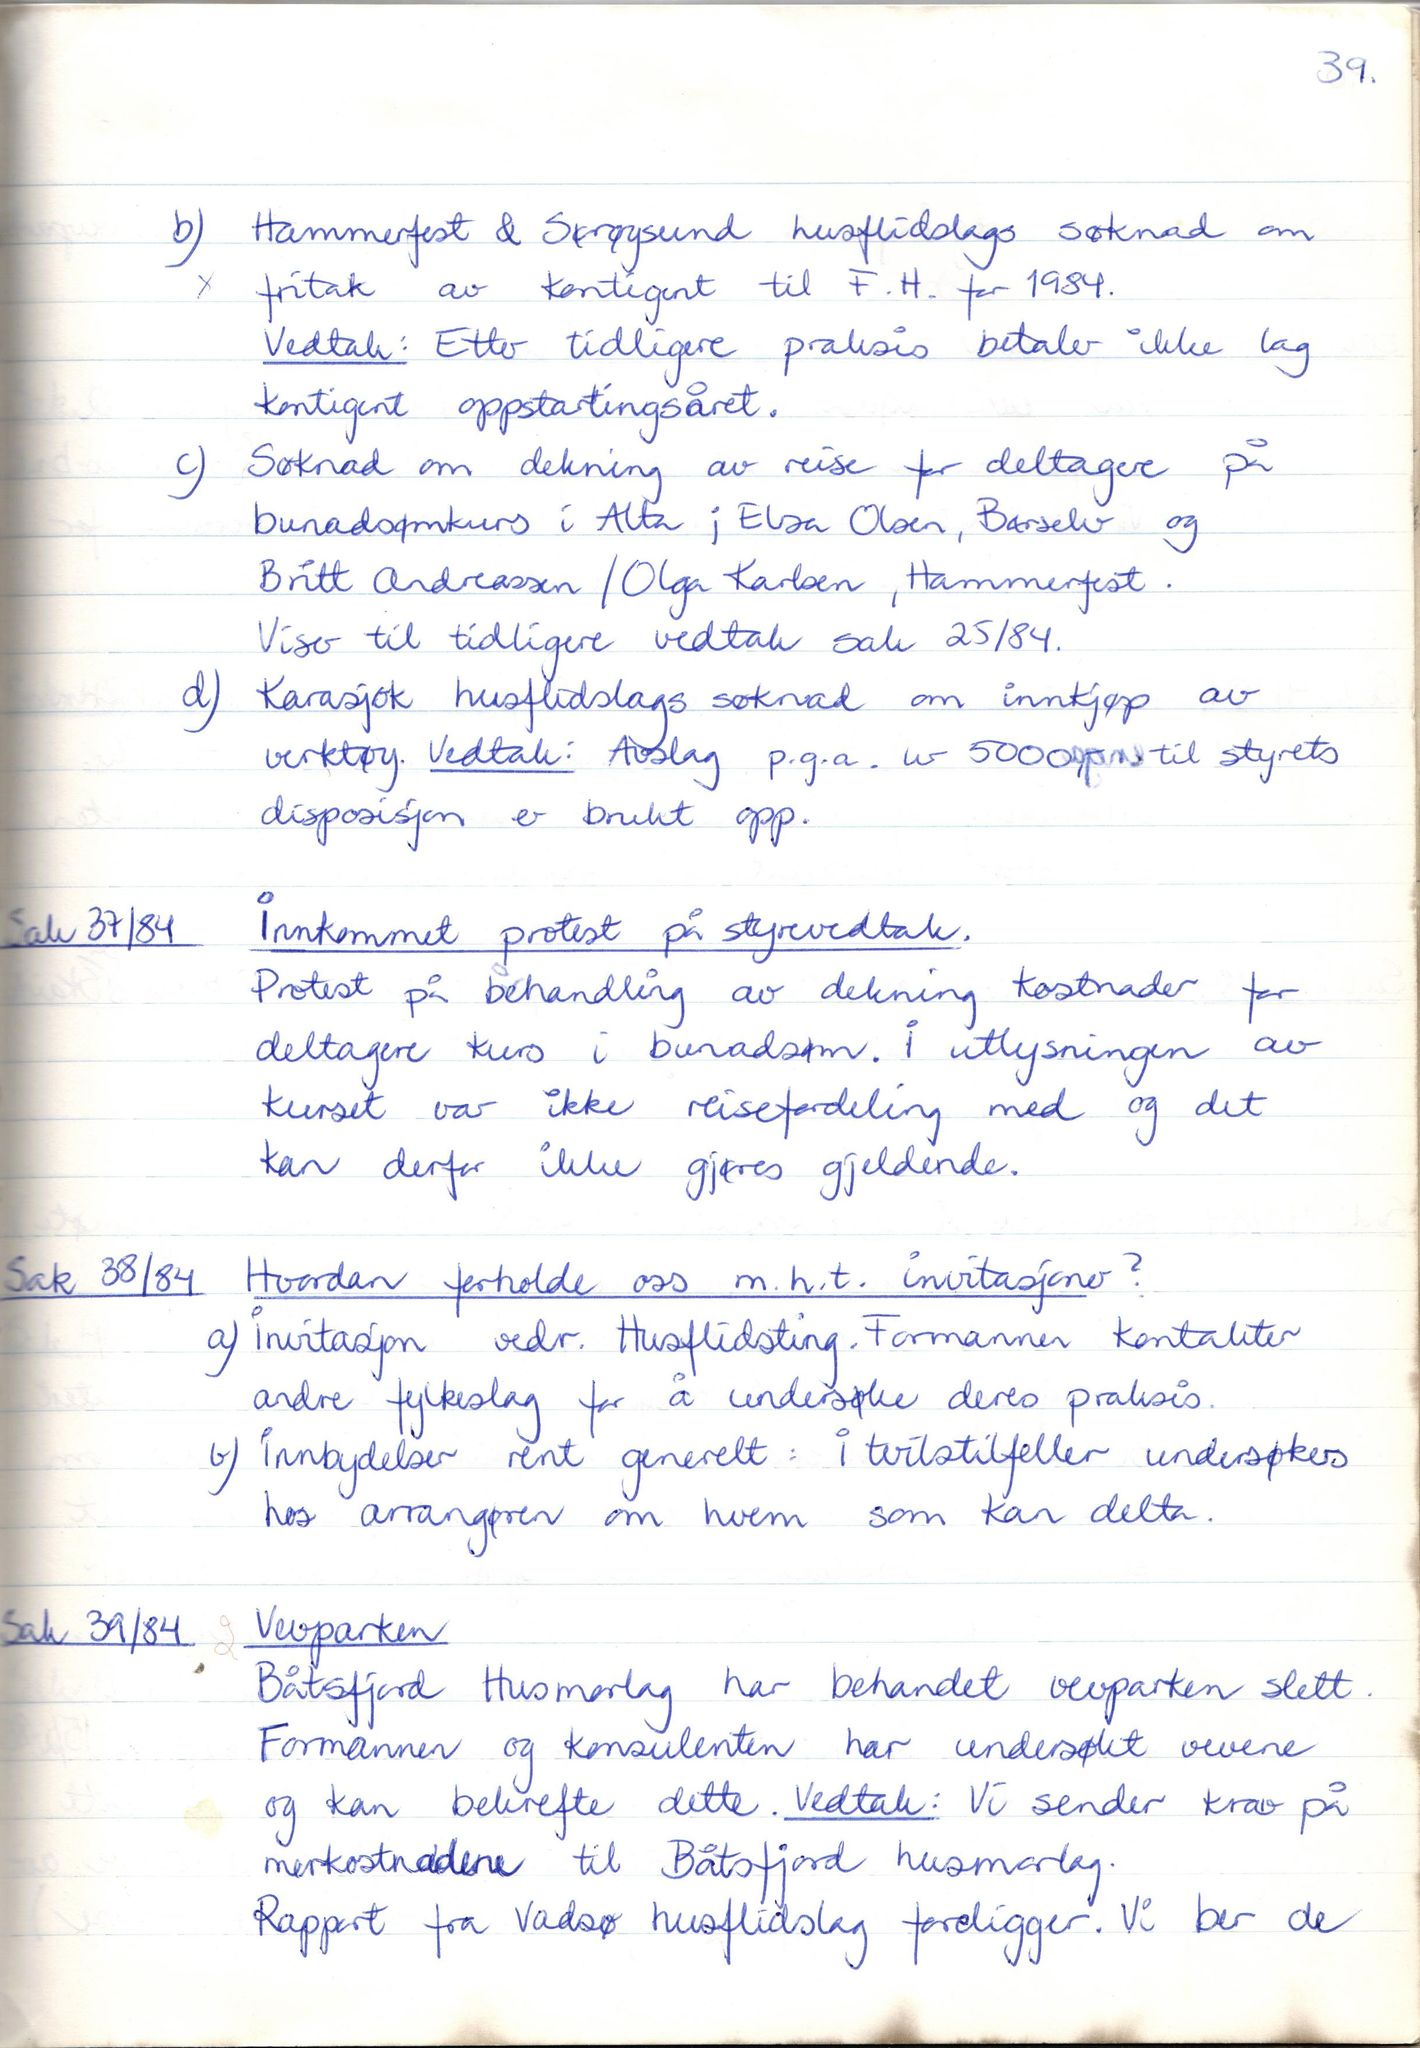 39.
b) Hammerfest & Sørøysund husflidslags søknad om
x fritak av kontigent til F.H. for 1984.
Vedtak: Etter tidligere praksis betaler ikke lag
kontigent oppstartingsåret.
c) Søknad om dekning av reise for deltagere på
bunadsømkurs i Alta ; Elsa Olsen, Børselv og
Britt Andreassen / Olga Karlsen, Hammerfest.
Viser til tidligere vedtak sak 25/84.
d) Karasjok husflidslags søknad om innkjøp av
verktøy. Vedtak: Avslag p.g.a. kr 5000 til styrets
disposisjon er brukt opp.
Sak 37/84 Innkommet protest på styrevedtak.
Protest på behandling av dekning kostnader for
deltagere kurs i bunadsøm. I utlysningen av
kurset var ikke reisefordeling med og det
kan derfor ikke gjøres gjeldende.
Sak 38/84 Hvordan forholde oss m.h.t. invitasjoner?
a) Invitasjon vedr. Husflidsting. Formannen kontakter
andre fylkeslag for å undersøke deres praksis.
b) Innbydelser rent generelt: I tvilstilfeller undersøkes
hos arrangøren om hvem som kan delta.
Sak 39/84 Vevparken
Båtsfjord Husmorlag har behandet vevparken slett.
Formannen og konsulenten har undersøkt vevene
og kan bekrefte dette. Vedtak: Vi sender krav på
merkostnadene til Båtsfjord husmorlag.
Rapport fra Vadsø husflidslag foreligger. Vi ber de